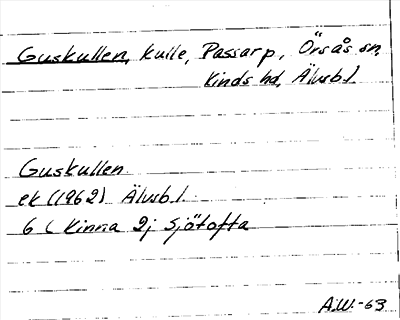 Guskullen, kulle, Passarp, Örsås sn.
Kinds hd, Älvsb l.
Guskullen
ek (1962) Älvsb l.
6 C Kinna 2j Sjötofta
A.W.-63